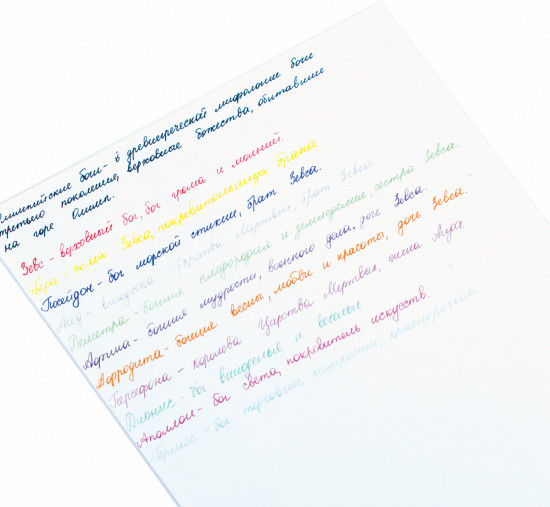 Олимпийские боги - в древнегреческой мифологии боги
третьего поколения, верховные божества, обитавшие
на горе Олимп.
Зевс - верховный бог, бог грома и молний.
Гера - жена Зевса, покровительница брака
Посейдон - бог морской стихии, брат Зевса.
Аид - владыка Царства Мертвых, брат Зевса.
Деметра - богиня плодородия и земледелия, сестра Зевса.
Афина - богиня мудрости, военного дела, дочь Зевса.
Афродита - богиня весны, любви и красоты, дочь Зевса.
Персефона - королева Царства Мертвых, жена Аида
Дионис - бог виноделия и веселья
Аполлон - бог света, покровитель искусств.
Гермес - бог торговли, хитрости, красноречия